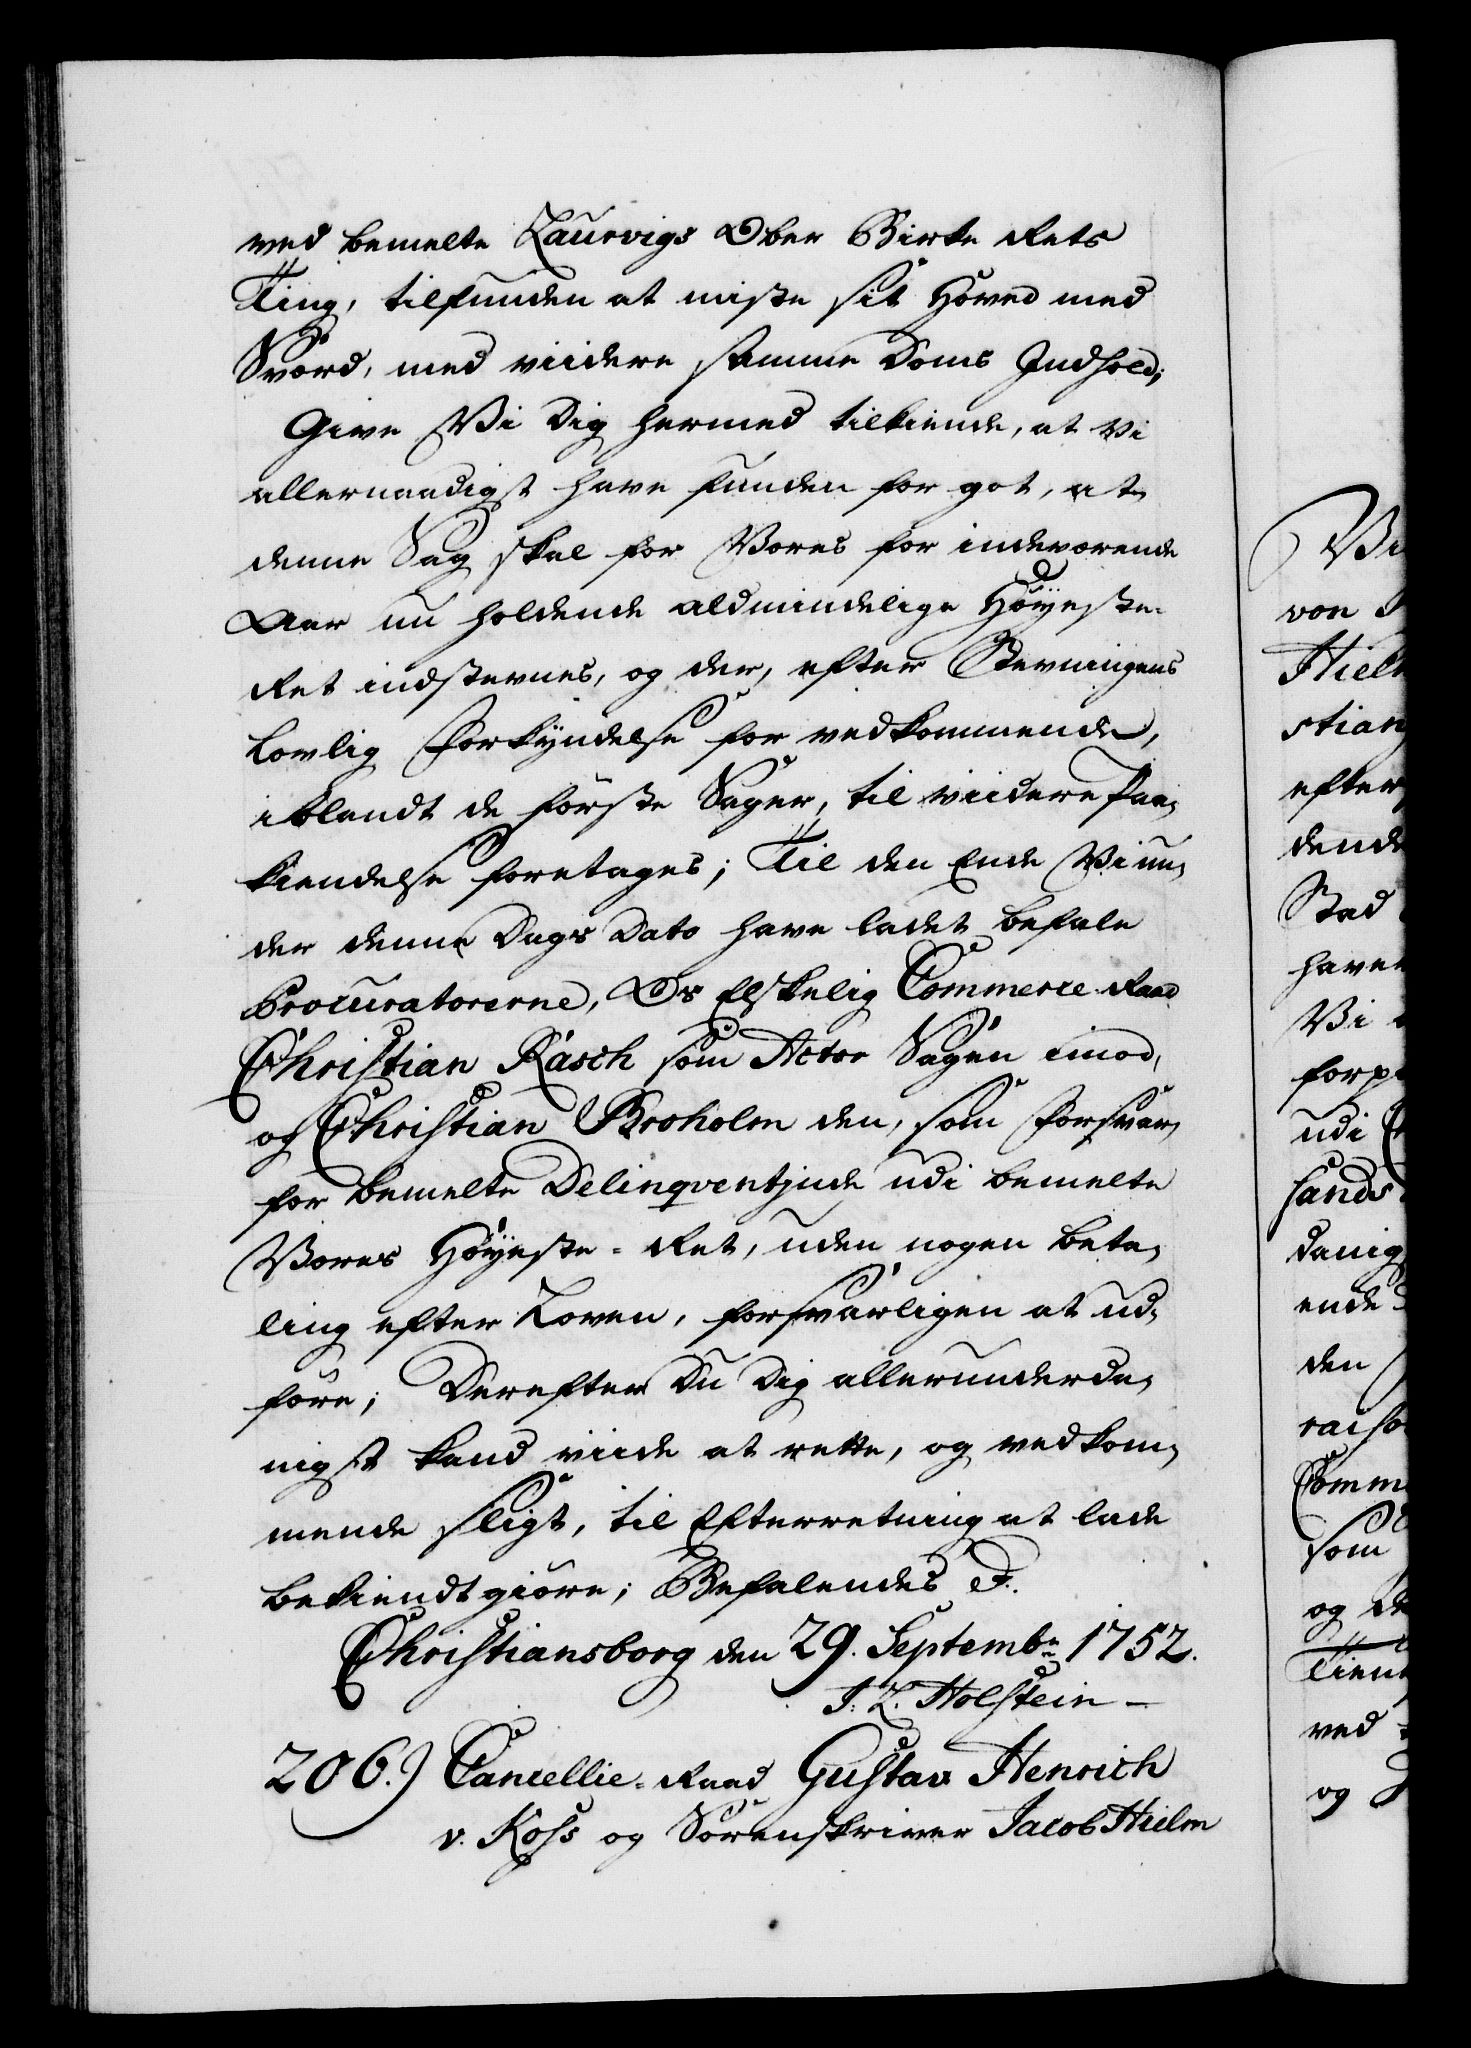 ved bemelte Laurvigs Ober Birke Rets
Ting, tilfunden at miste sit Hoved med
Sværd, med viidere samme Doms Indhold;
Give Vi Dig hermed tilkiende, at Vi
allernaadigst have funden for got, at
denne Sag skal for Vores for indeværende
Aar nu holdende aldmindelige Høyeste-
Ret indstevnes, og der, efter Stevningens
lovlig Forkyndelse for vedkommende,
iblandt de første Sager, til viidere Paa-
kiendelse foretages; Til den Ende Vi un-
der denne Dags Dato have ladet befale
Procuratorerne, Os Elskelig Commerce-Raad
Christian Råsch som Actor Sagen imod,
og Christian Broholm den, som Forsvar,
for bemelte Delinqventjnde udi bemelte
Vores Høyeste-Ret, uden nogen beta-
ling efter Loven, forsvarligen at ud-
føre; Derefter Du Dig allerunderda-
nigst kand viide at rette, og vedkom-
mende sligt, til Efterretning at lade
bekiendtgiøre; Befalendes &.
Christiansborg den 29. Septembr 1752.
J. L. Holstein —
206.) Cancellie-Raad Gustav Henrich
v. Koss og Sorenskriver Jacob Hielm
Vi
von
Hiel
stian
efter
dende
Stad
have
Vi
forp
udi
sands
danig
ende
den
raiso
Comm
som
og de
Tien
ved
og